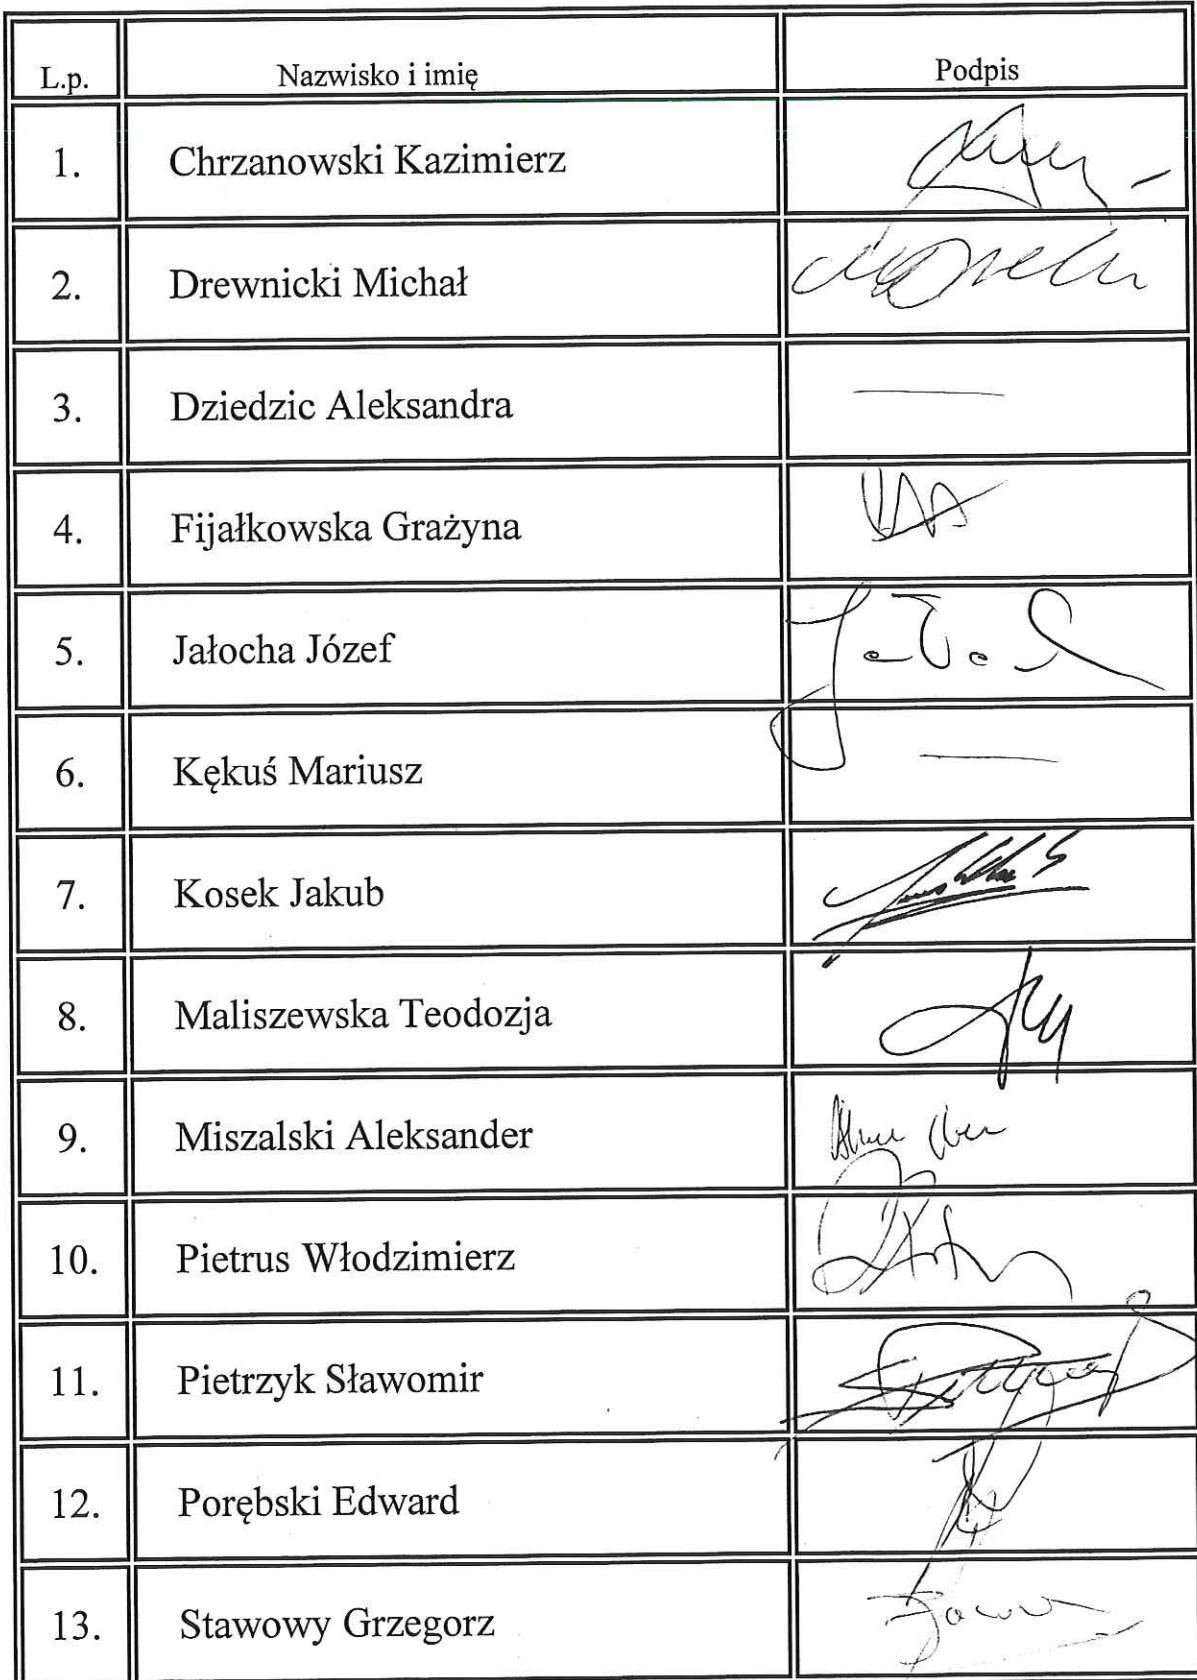 L.p. Nazwisko i imię Podpis
1. Chrzanowski Kazimierz
2. Drewnicki Michał
3. Dziedzic Aleksandra —
4. Fijałkowska Grażyna
5. Jałocha Józef
6. Kękuś Mariusz —
7. Kosek Jakub
8. Maliszewska Teodozja
9. Miszalski Aleksander
10. Pietrus Włodzimierz
11. Pietrzyk Sławomir
12. Porębski Edward
13. Stawowy Grzegorz